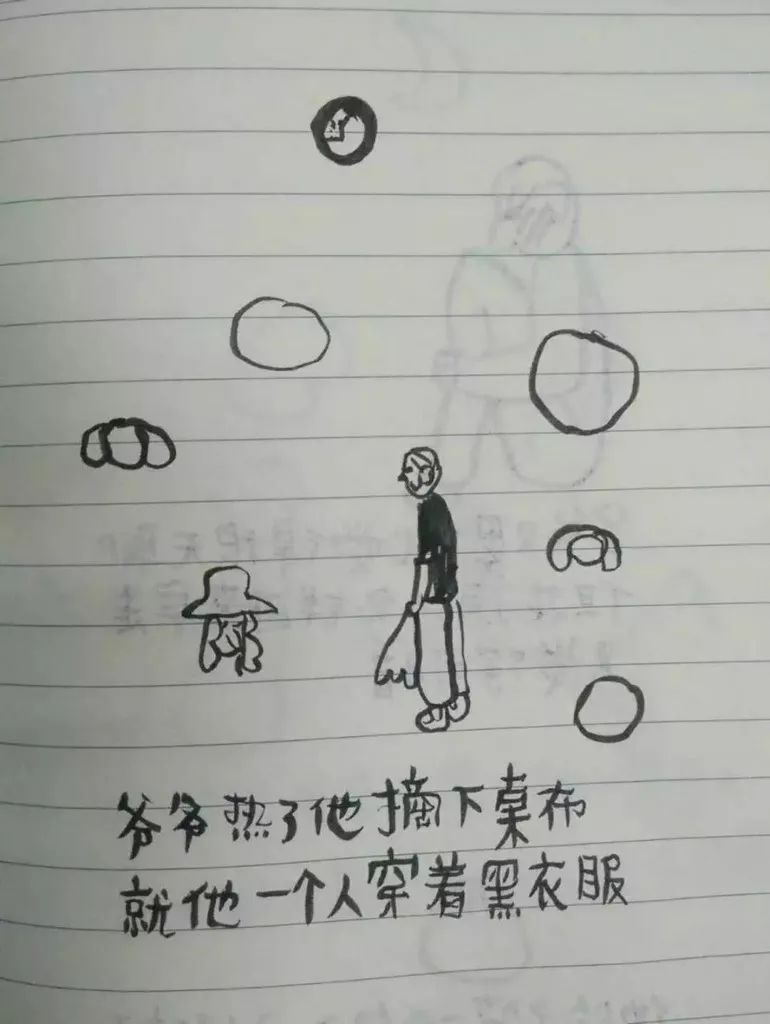 爷爷热了他摘下桌布
就他一个人穿着黑衣服